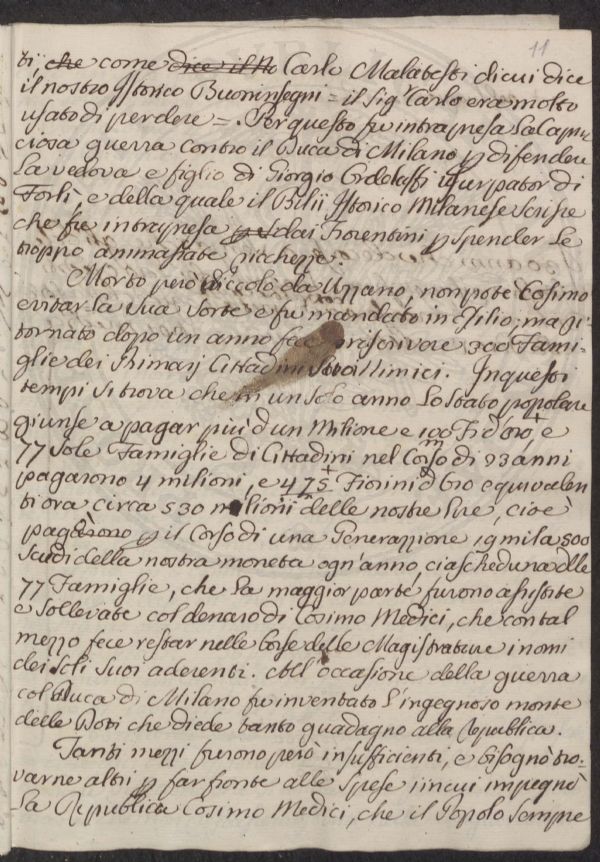 11
ti, che come dice il No Carlo Malatesti di cui dice
il nostro Istorico Buoninsegni = il Sig.r Carlo era molto
usato di perdere =. Per questo fu intrapresa La Capric
ciosa guerra contro il Duca di Milano p difendere
La vedova e figlio di Giorgio Ordelaffi usurpator di
Forlì, e della quale il Bilii Istorico Milanese Scrisse
che fu intrapresa p dai Fiorentini p spender Le
troppo ammassate ricchezze.
Morto però Niccolò da Uzzano, non potè Cosimo
evitar La sua sorte e fu mandato in Esilio; ma ri
tornato dopo un anno fece proscrivere 300 Fami-
glie dei Primarj Cittadini Suoi Nimici. In questi
tempi si trova che in un solo anno Lo Stato popolare
giunse a pagar più d'un Milione e 100 Fi d'oro, e
77 Sole Famiglie di Cittadini nel Corso di 23 anni
pagarono 4 milioni, e 475 Fiorini d'Oro equivalen
ti ora circa 530 milioni delle nostre Lire, cioè
pagarono p il Corso di una Generazione 19 mila 500
Scudi della nostra moneta ogn'anno ciascheduna dlle
77 Famiglie, che La maggior parte furono assistite
e Sollevate col denaro di Cosimo Medici, che con tal
mezzo fece restar nelle borse delle Magistrature i nomi
dei Soli Suoi aderenti. All'occasione della guerra
col Duca di Milano fu inventato L'ingegnoso monte
delle Doti che diede tanto guadagno alla Republica.
Tanti mezzi furono però insufficienti, e bisognò tro-
varne altri p far fronte alle Spese in cui impegnò
La Republica Cosimo Medici, che il Popolo Sempre